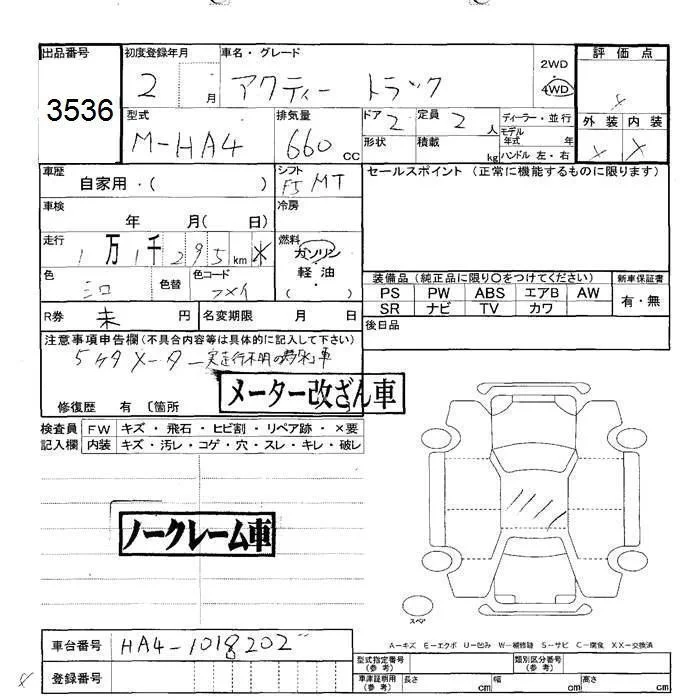 出品番号 初度登録年月 車名・グレード 評価点
3536 2 月 アクティー トラック 2WD 4WD
型式 排気量 ドア 定員 ディーラー・並行 外装 内装
M-HA4 660 CC 2 2 人 モデル年式 年 X X
形状 積載 kg ハンドル 左・右
車歴 シフト セールスポイント (正常に機能するものに限ります)
自家用・( ) F5 MT
車検 冷房
年 月( 日)
走行 燃料
1万1千295km* ガソリン
軽油
色 色替 色コード 装備品(純正品に限り○をつけてください) 新車保証書
シロ ( ) PS PW ABS エアB AW 有・無
SR ナビ TV カワ
R券 未 円 名変期限 月 日 後日品
注意事項申告欄(不具合内容等は具体的に記入して下さい)
5ケタメーター実走行不明の為*車
メーター改ざん車
修復歴 有 〔箇所
検査員 FW キズ・飛石・ヒビ割・リペア跡・×要
記入欄 内装 キズ・汚レ・コゲ・穴・スレ・キレ・破レ
ノークレーム車
スペア
車台番号 HA4-1018202
A-キズ E-エクボ U-凹み W-補修跡 S-サビ C-腐食 XX-交換済
登録番号 型式指定番号(参考) 類別区分番号(参考)
車庫証明用(参考) 長さ cm 幅 cm 高さ cm